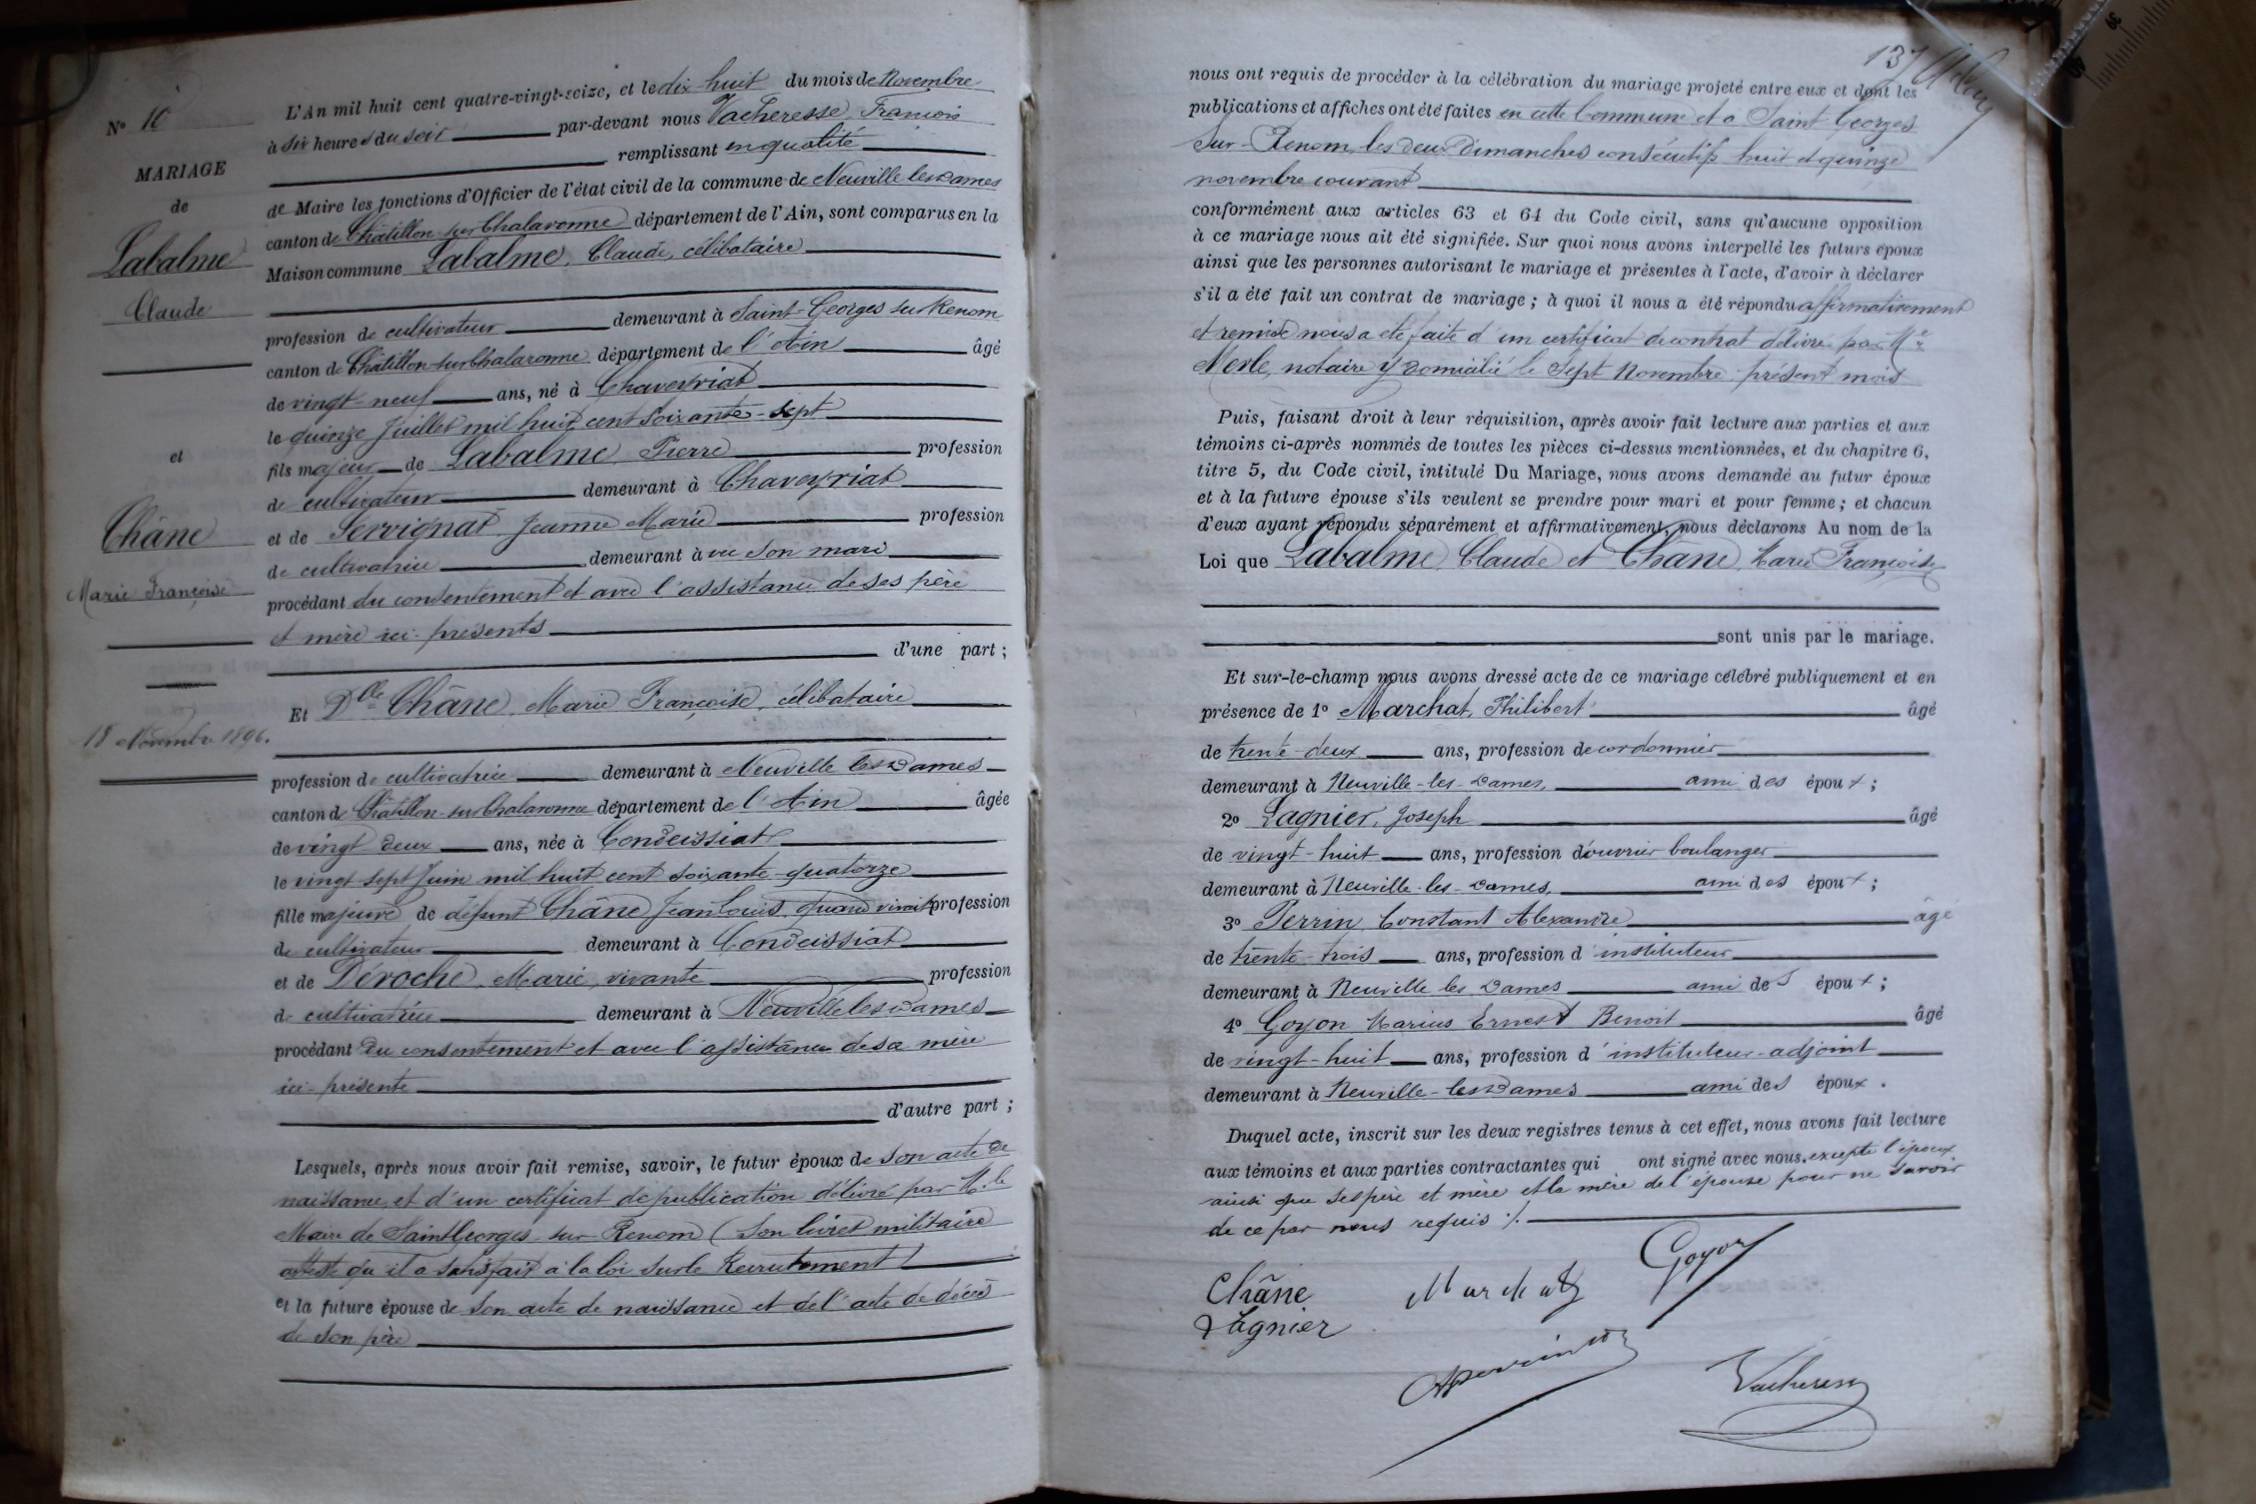 N° 10
MARIAGE
de
Labalme
Claude
et
Châne
Marie Françoise
18 Novembre 1896.
L'An mil huit cent quatre-vingt-seize, et le dix-huit du mois de Novembre
à six heures du soir par-devant nous Vacheresse, François
remplissant en qualité
de Maire les fonctions d'Officier de l'état civil de la commune de Neuville les Dames
canton de Châtillon-sur-Chalaronne département de l'Ain, sont comparus en la
Maison commune Labalme, Claude, célibataire
profession de cultivateur demeurant à Saint-Georges sur Renom
canton de Châtillon-sur-Chalaronne département de l'Ain âgé
de vingt-neuf ans, né à Chaveyriat
le quinze Juillet mil huit cent soixante-sept
fils majeur de Labalme, Pierre profession
de cultivateur demeurant à Chaveyriat
et de Servignat Jeanne Marie profession
de cultivatrice demeurant à vec son mari
procédant du consentement et avec l'assistance de ses père
et mère ici présents
d'une part ;
Et Dlle Châne, Marie Françoise, célibataire
profession de cultivatrice demeurant à Neuville les Dames
canton de Châtillon-sur-Chalaronne département de l'Ain âgée
de vingt deux ans, née à Condeissiat
le vingt sept Juin mil huit cent soixante-quatorze
fille majeure de défunt Châne Jean Louis, quand vivait profession
de cultivateur demeurant à Condeissiat
et de Déroche, Marie, vivante profession
de cultivatrice demeurant à Neuville les Dames
procédant du consentement et avec l'assistance de sa mère
ici-présente
d'autre part ;
Lesquels, après nous avoir fait remise, savoir, le futur époux de son acte de
naissance, et d'un certificat de publication délivré par M. le
Maire de Saint Georges-sur-Renom (Son livret militaire
atteste qu'il a satisfait à la loi sur le Recrutement)
et la future épouse de son acte de naissance et de l'acte de décès
de son père
137
nous ont requis de procéder à la célébration du mariage projeté entre eux et dont les
publications et affiches ont été faites en cette Commune et à Saint Georges
Sur-Renom, les deux Dimanches consécutifs huit et quinze
novembre courant
conformément aux articles 63 et 64 du Code civil, sans qu'aucune opposition
à ce mariage nous ait été signifiée. Sur quoi nous avons interpellé les futurs époux
ainsi que les personnes autorisant le mariage et présentes à l'acte, d'avoir à déclarer
s'il a été fait un contrat de mariage ; à quoi il nous a été répondu affirmativement
et remise nous a été faite d'un certificat de contrat délivré par Me
Merle, notaire y domicilié le Sept Novembre présent mois
Puis, faisant droit à leur réquisition, après avoir fait lecture aux parties et aux
témoins ci-après nommés de toutes les pièces ci-dessus mentionnées, et du chapitre 6,
titre 5, du Code civil, intitulé Du Mariage, nous avons demandé au futur époux
et à la future épouse s'ils veulent se prendre pour mari et pour femme ; et chacun
d'eux ayant répondu séparément et affirmativement, nous déclarons Au nom de la
Loi que Labalme, Claude et Châne, Marie Françoise
sont unis par le mariage.
Et sur-le-champ nous avons dressé acte de ce mariage célébré publiquement et en
présence de 1° Marchat, Philibert âgé
de trente-deux ans, profession de cordonnier
demeurant à Neuville-les-Dames, ami des époux ;
2° Lagnier, Joseph âgé
de vingt-huit ans, profession d'ouvrier boulanger
demeurant à Neuville-les-Dames, ami des époux ;
3° Perrin Constant Alexandre âgé
de trente-trois ans, profession d'instituteur
demeurant à Neuville les Dames ami des époux ;
4° Goyon Marius Ernest Benoit âgé
de vingt-huit ans, profession d'instituteur-adjoint
demeurant à Neuville-les Dames ami des époux.
Duquel acte, inscrit sur les deux registres tenus à cet effet, nous avons fait lecture
aux témoins et aux parties contractantes qui ont signé avec nous, excepté l'époux
ainsi que ses père et mère et la mère de l'épouse pour ne savoir
de ce par nous requis ./.
Châne Marchat Goyon
Lagnier
A Perrin
Vacheresse